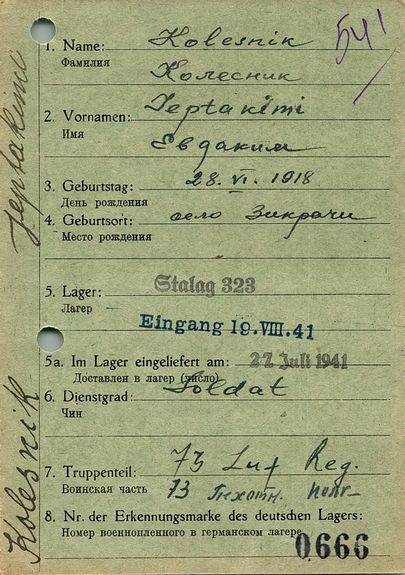 541
1. Name: Kolesnik
Фамилия Колесник
2. Vornamen: Jeptakimi
Имя Евдаким
3. Geburtstag: 28. VI. 1918
День рождения
4. Geburtsort: село Зикрачи
Место рождения
5. Lager: Stalag 323
Лагер
Eingang 19.VIII.41
5a. Im Lager eingeliefert am: 27. Juli 1941
Доставлен в лагер (число)
6. Dienstgrad: Soldat
Чин
7. Truppenteil: 73 Reg.
Воинская часть 73
8. Nr. der Erkennungsmarke des deutschen Lagers:
Номер военнопленного в германском лагере 0666
Kolesnik Jeptakimi